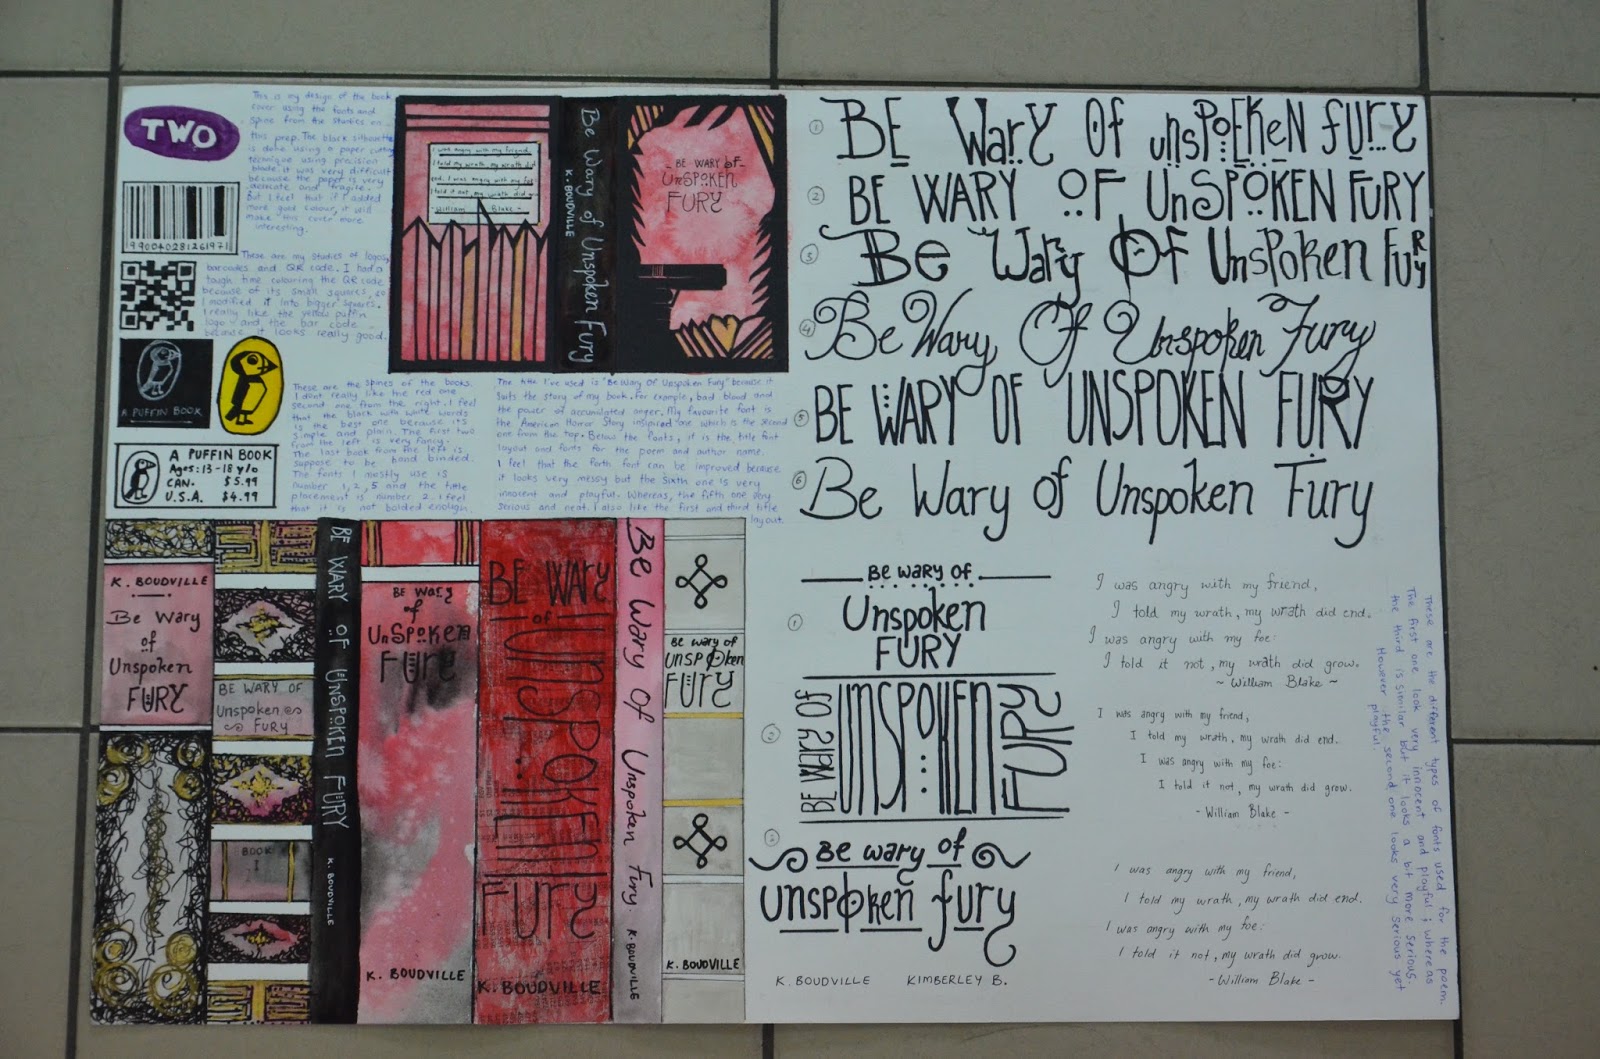 TWO
This is my design of the book
cover using the fonts and
spine from the studies on
this prep. The black silhouette
is done using a paper cutting
technique using precision
blade. it was very difficult
because the paper is very
delicate and fragile.
But I feel that if I added
more gold colour, it will
make this cover more
interesting.
990040281261971
These are my studies of logos,
barcodes and QR code. I had a
tough time colouring the QR code
because of its small squares, so
I modified it into bigger squares.
I really like the yellow puffin
logo and the bar code
because it looks really good.
A PUFFIN BOOK
A PUFFIN BOOK
Ages: 13-18 y/o
CAN. $5.99
U.S.A. $4.99
I was angry with my friend,
I told my wrath, my wrath did
end. I was angry with my foe:
I told it not, my wrath did
William Blake -
Be Wary of Unspoken Fury
K. BOUDVILLE
- BE WARY of -
UnSPOKEN
FURY
These are the spines of the books.
I dont really like the red one
second one from the right. I feel
that the black with white words
is the best one because its
simple and plain. The first two
from the left is very fancy.
The last book from the left is
suppose to be hand binded.
The fonts I mostly use is
number 1, 2, 5 and the title
placement is number 2. I feel
that it is not bolded enough.
The title I've used is "Be Wary Of Unspoken Fury" because it
suits the story of my book. For example, bad blood and
the power of accumulated anger. My favourite font is
the American Horror Story inspired one which is the second
one from the top. Below the fonts, it is the title font
layout and fonts for the poem and author name.
I feel that the forth font can be improved because
it looks very messy but the sixth one is very
innocent and playful. Whereas, the fifth one very
serious and neat. I also like the first and third title
layout.
1 BE Wary Of unspoken fury
2 BE WARY OF UnSPOKEN FURY
3 Be Wary Of Unspoken FuRy
4 Be Wary Of Unspoken Fury
5 BE WARY OF UNSPOKEN FURY
6 Be Wary of Unspoken Fury
K. BOUDVILLE
Be Wary
of
Unspoken
FURY
BE WARY OF
Unspoken
FURY
BOOK
I
BE WARY OF UNSPOKEN FURY
K. BOUDVILLE
BE WARY
of
UnSPOKEN
FURY
K. BOUDVILLE
BE WARY
OF
UNSPOKEN
FURY
K. BOUDVILLE
Be Wary Of Unspoken Fury.
K. BOUDVILLE
Be wary of
UNSPOKEN
FURY
K. BOUDVILLE
1
Be wary of
Unspoken
FURY
2
BE WARY OF
UNSPOKEN
FURY
3
Be wary of
unspoken fury
K. BOUDVILLE KIMBERLEY B.
I was angry with my friend,
I told my wrath, my wrath did end.
I was angry with my foe:
I told it not, my wrath did grow.
~ William Blake ~
I was angry with my friend,
I told my wrath, my wrath did end.
I was angry with my foe:
I told it not, my wrath did grow.
- William Blake -
I was angry with my friend,
I told my wrath, my wrath did end.
I was angry with my foe:
I told it not, my wrath did grow.
- William Blake -
These are the different types of fonts used for the poem.
The first one look very innocent and playful; whereas
the third is similar but it looks a bit more serious.
However the second one looks very serious yet
playful.